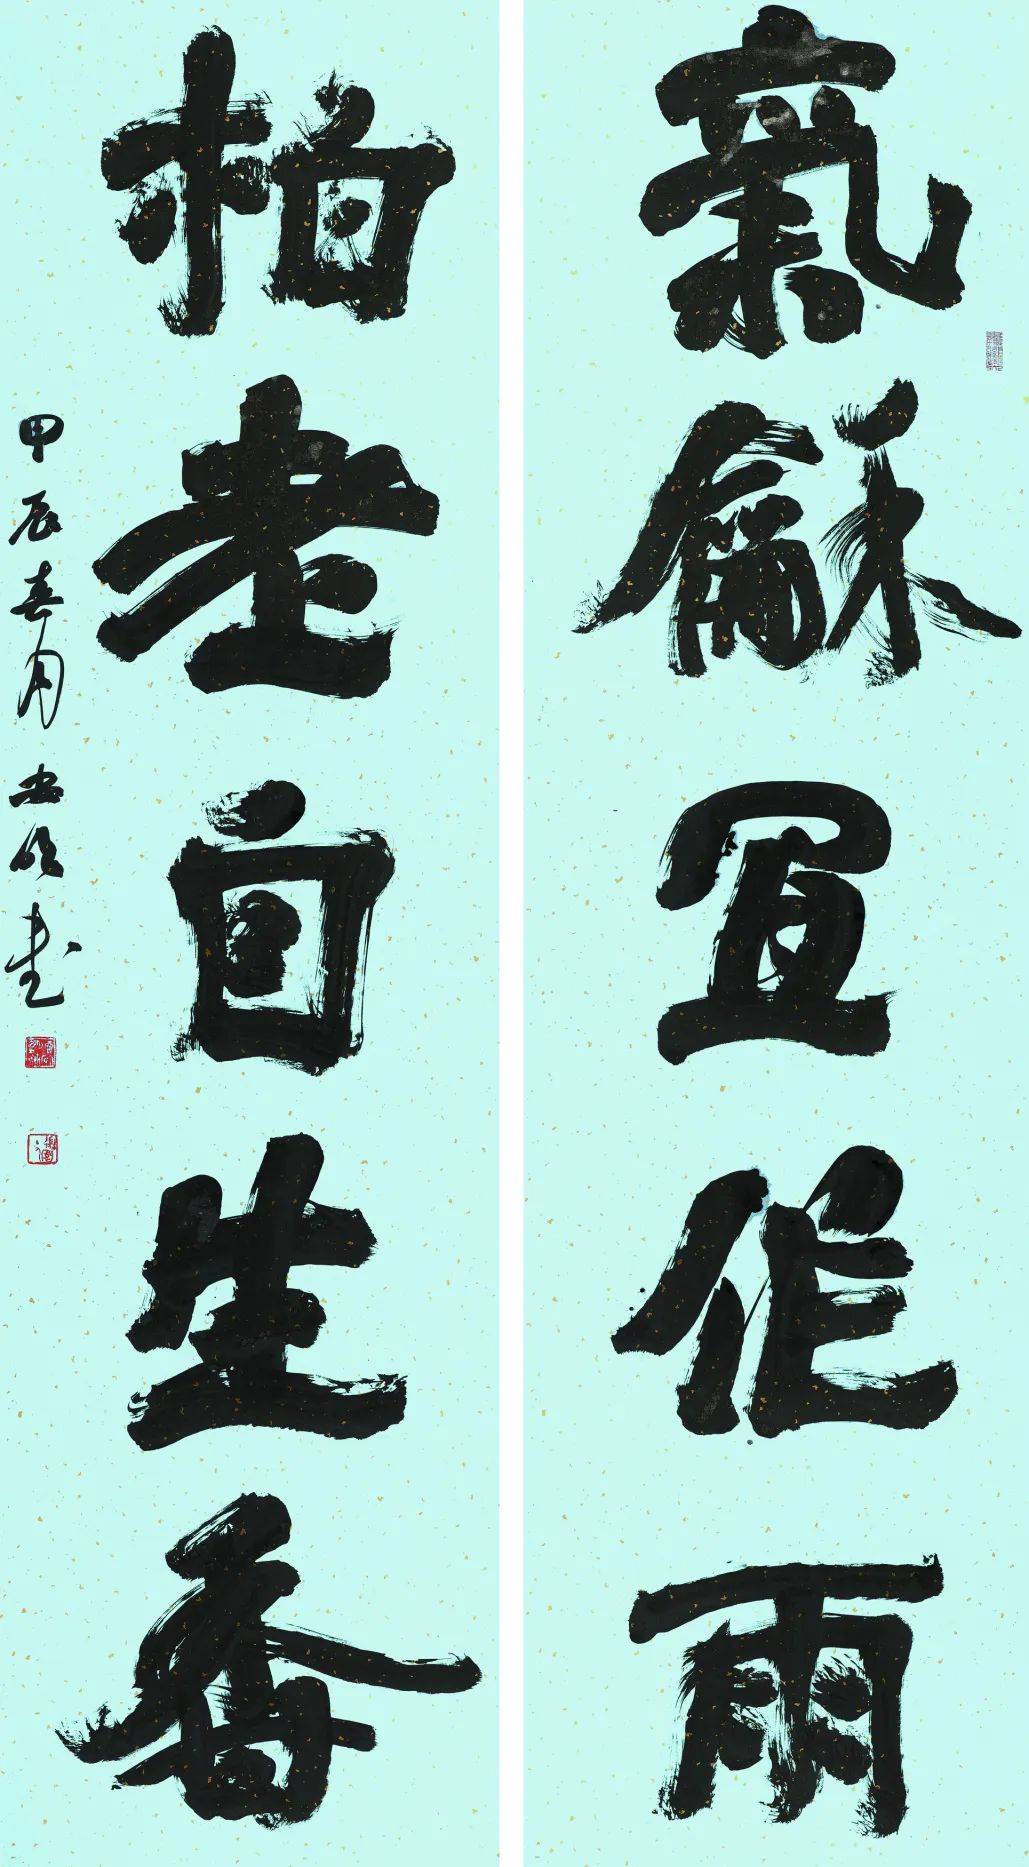 氣龢宜作雨
柏老自生香
甲辰春月